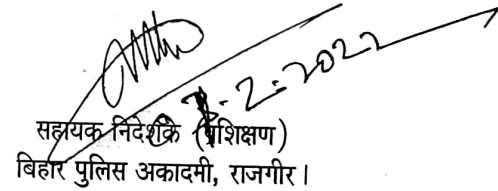 सहायक निदेशक (प्रशिक्षण)
बिहार पुलिस अकादमी, राजगीर।